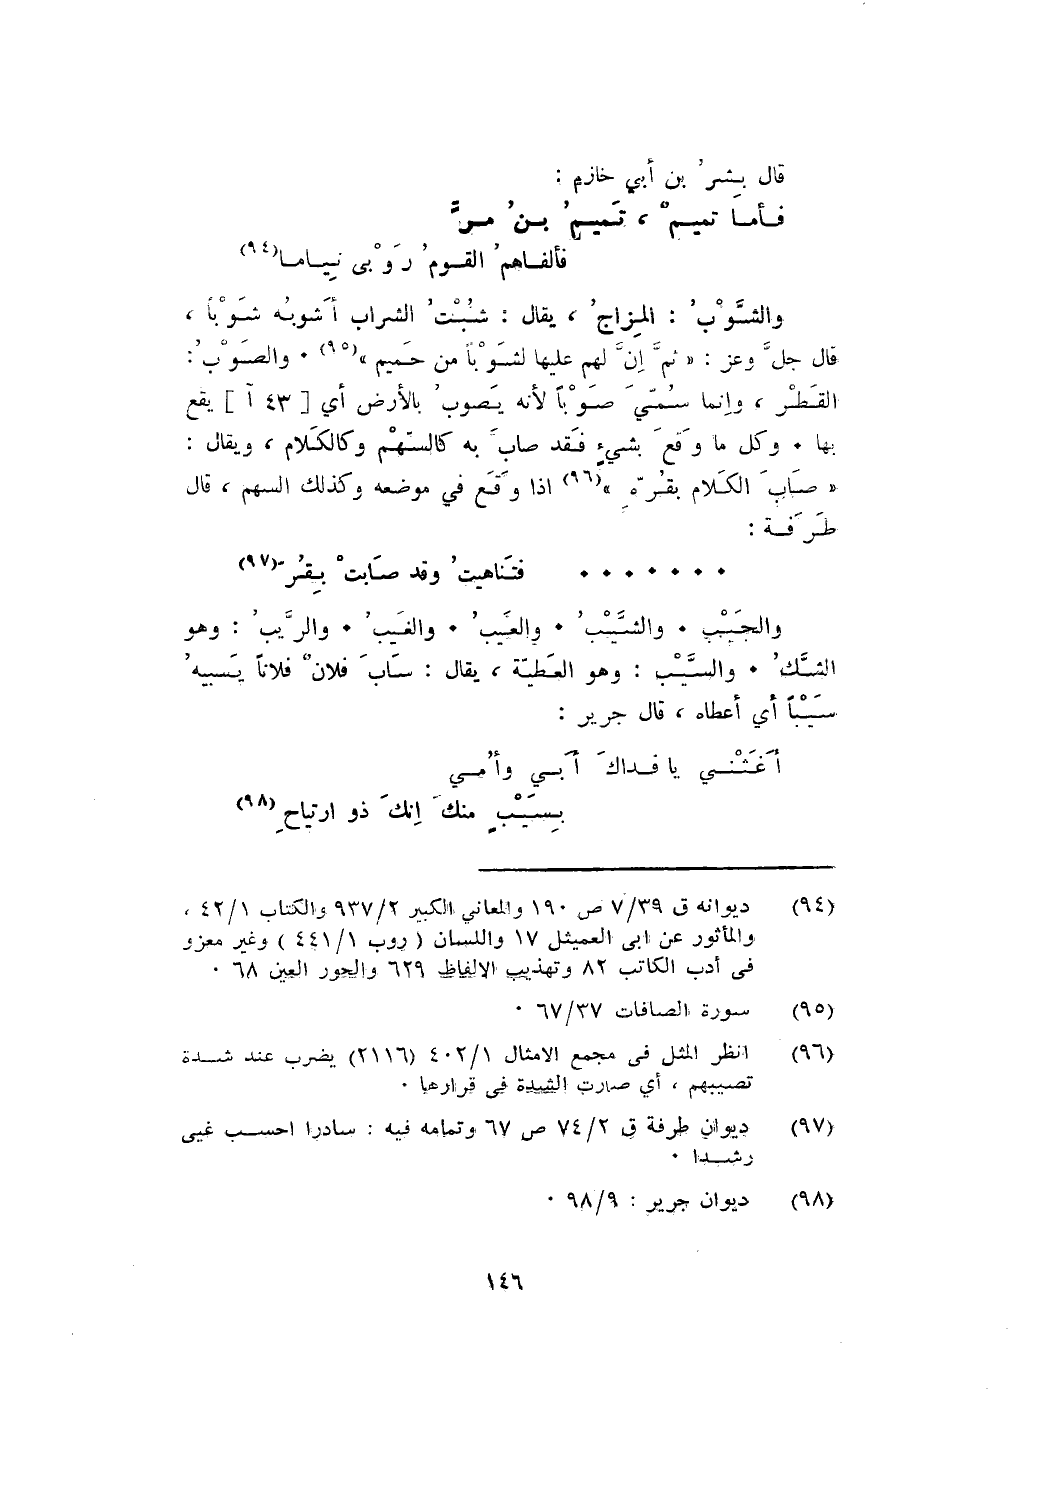 قال بِشرُ بن أبي خازم :
فـأمـا تميـمٌ ، تَميـمُ بـنُ مـرَّ
فألفـاهمُ القـومُ رَوْبى نِيـامـا(٩٤)
والشَّوْبُ : المِزاجُ ، يقال : شُبْتُ الشراب أَشوبُه شَوْباً ،
قال جلَّ وعز : « ثمَّ إنَّ لهم عليها لشَوْباً من حَميم »(٩٥) ٠ والصَوْبُ :
القَطْر ، وإنما سُمّيَ صَوْباً لأنه يَصوبُ بالأرض أي [ ٤٣ آ ] يقع
بها ٠ وكل ما وَقعَ بشيءٍ فَقد صابَ به كالسّهْم وكالكَلام ، ويقال :
« صَابَ الكَلام بقُرّهِ »(٩٦) اذا وَقَع في موضعه وكذلك السهم ، قال
طَرَفـة :
٠ ٠ ٠ ٠ ٠ ٠ ٠ فتَناهيتُ وقد صَابتْ بِقُر(٩٧)
والجَيْب ٠ والشَّيْبُ ٠ والعَيبُ ٠ والغَيبُ ٠ والرَّيبُ : وهو
الشَّكُ ٠ والسَّيْب : وهو العَطيّة ، يقال : سَابَ فلانٌ فلاناً يَسيبهُ
سَيْباً أي أعطاه ، قال جرير :
أَغَثْنـي يا فـداكَ أَبـي وأُمـي
بِسَيْـبٍ منكَ إنكَ ذو ارتياحِ(٩٨)
(٩٤) ديوانه ق ٧/٣٩ ص ١٩٠ والمعاني الكبير ٩٣٧/٢ والكتاب ٤٢/١ ،
والمأثور عن ابى العميثل ١٧ واللسان ( روب ٤٤١/١ ) وغير معزو
فى أدب الكاتب ٨٢ وتهذيب الالفاظ ٦٢٩ والحور العين ٦٨ ٠
(٩٥) سورة الصافات ٦٧/٣٧ ٠
(٩٦) انظر المثل فى مجمع الامثال ٤٠٢/١ (٢١١٦) يضرب عند شـدة
تصيبهم ، أي صارت الشدة فى قرارها ٠
(٩٧) ديوان طرفة ق ٧٤/٢ ص ٦٧ وتمامه فيه : سادرا احسـب غيى
رشـدا ٠
(٩٨) ديوان جرير : ٩٨/٩ ٠
١٤٦